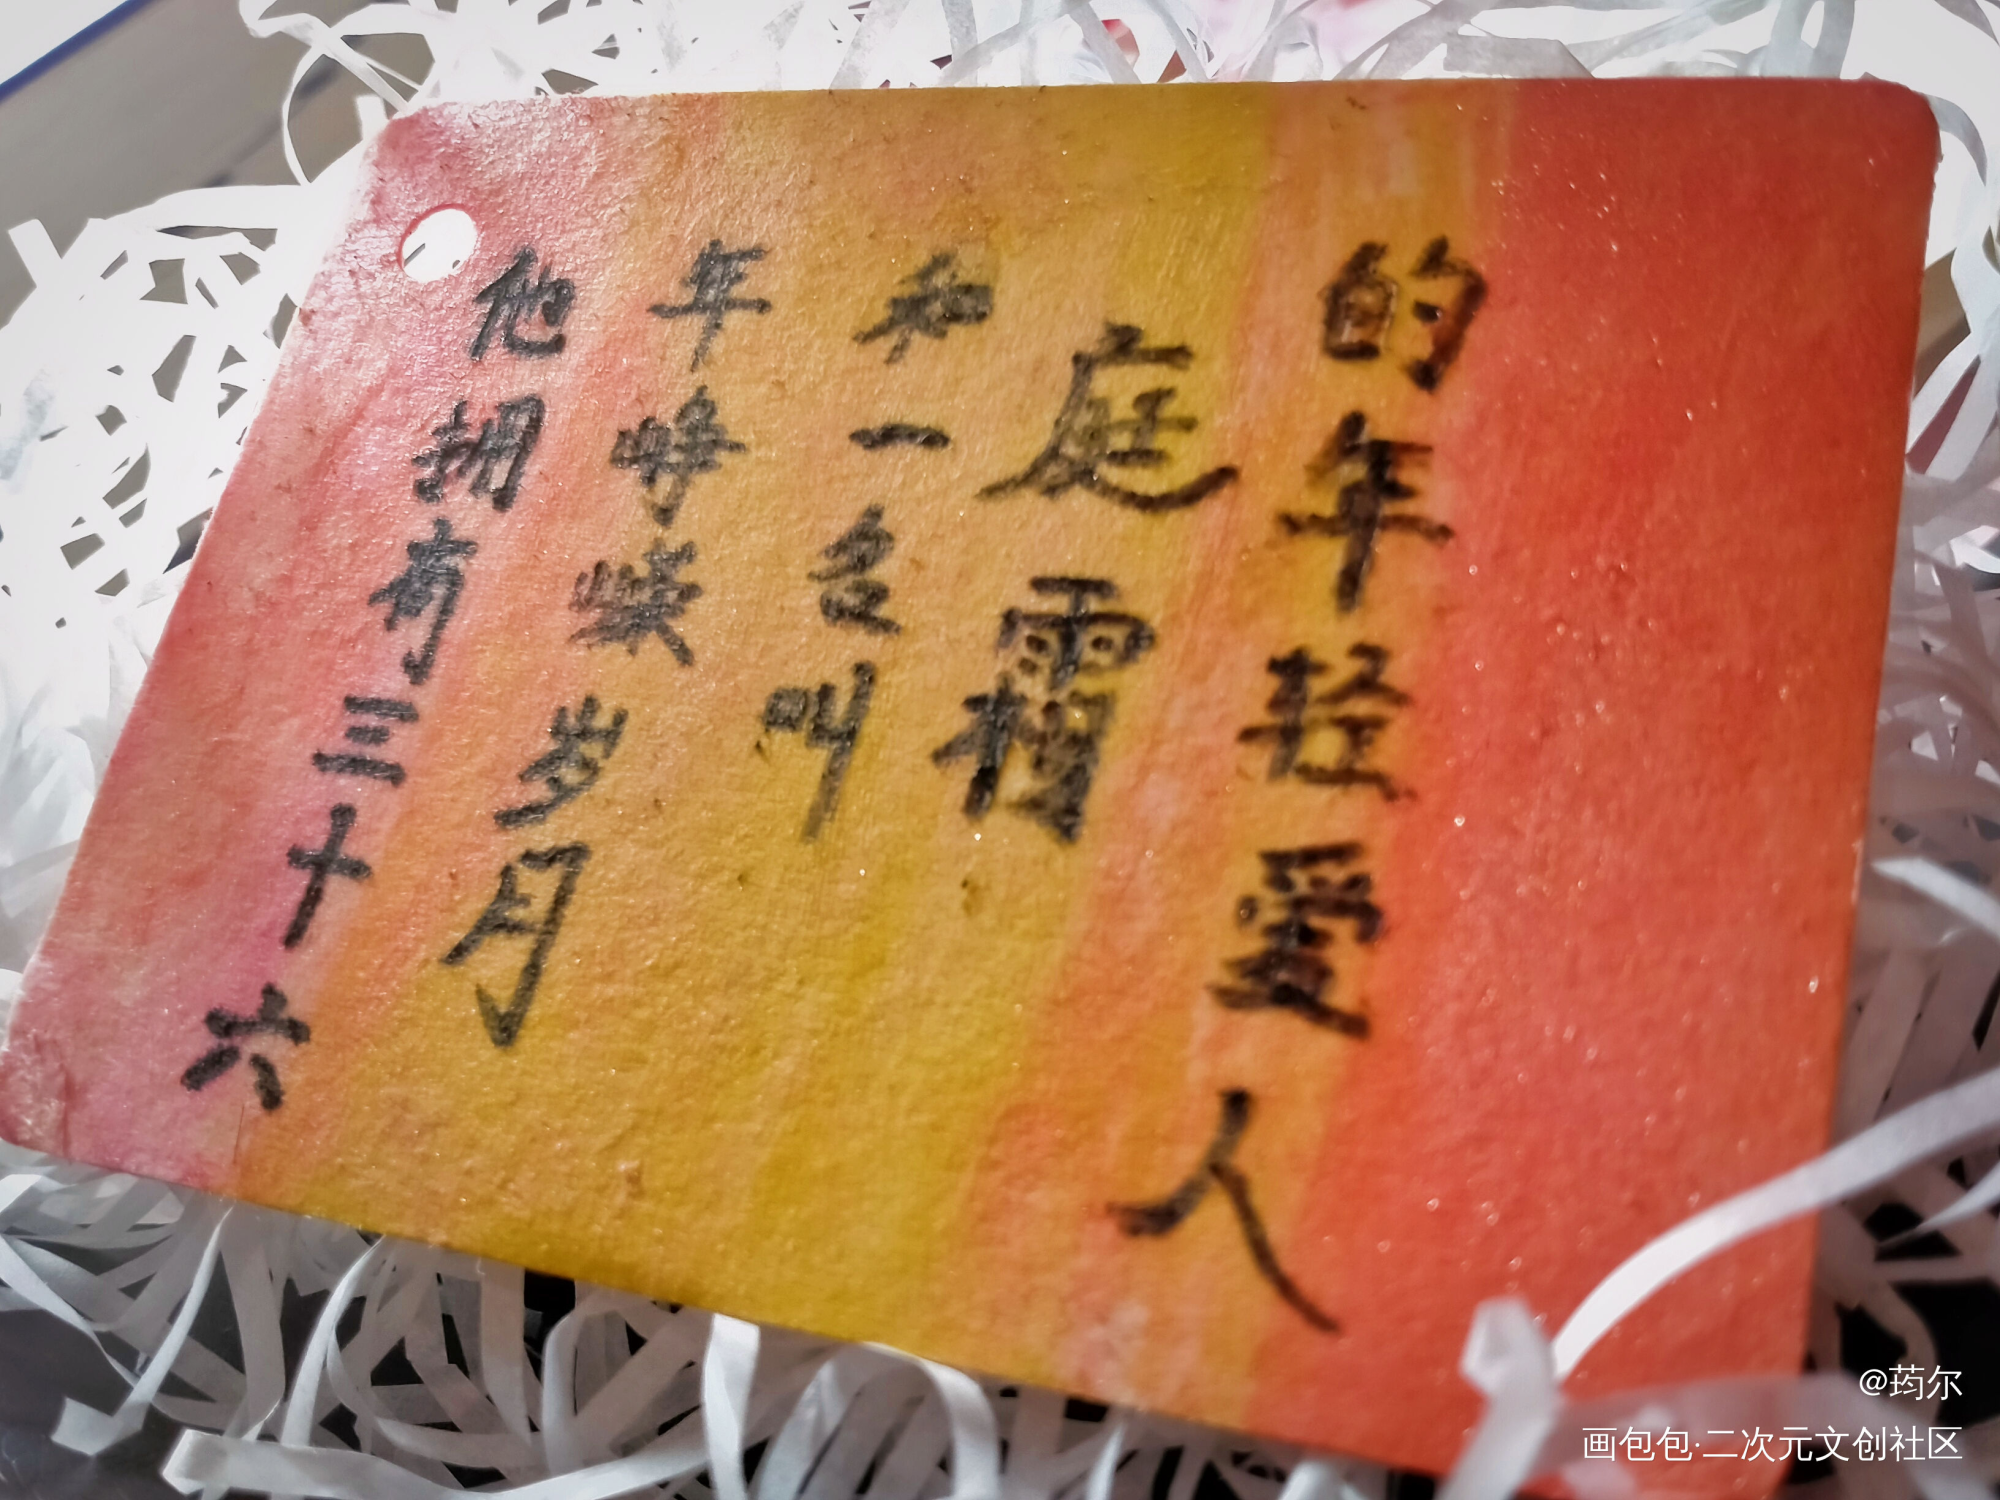 他拥有三十六
年峥嵘岁月
和一名叫
庭霜
的年轻爱人
@荺尔
画包包·二次元文创社区